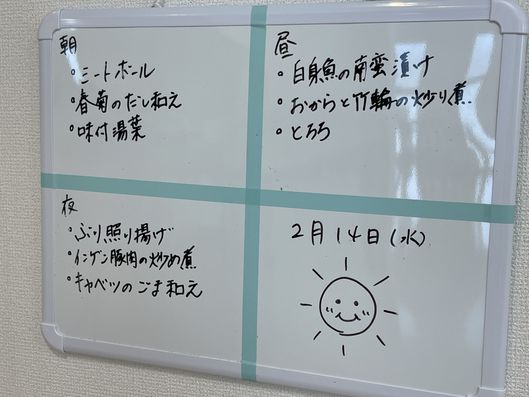 朝
・ミートボール
・春菊のだし和え
・味付湯葉
昼
・白身魚の南蛮漬け
・おからと竹輪の炒り煮
・とろろ
夜
・ぶり照り揚げ
・インゲン豚肉の炒め煮
・キャベツのごま和え
2月14日(水)